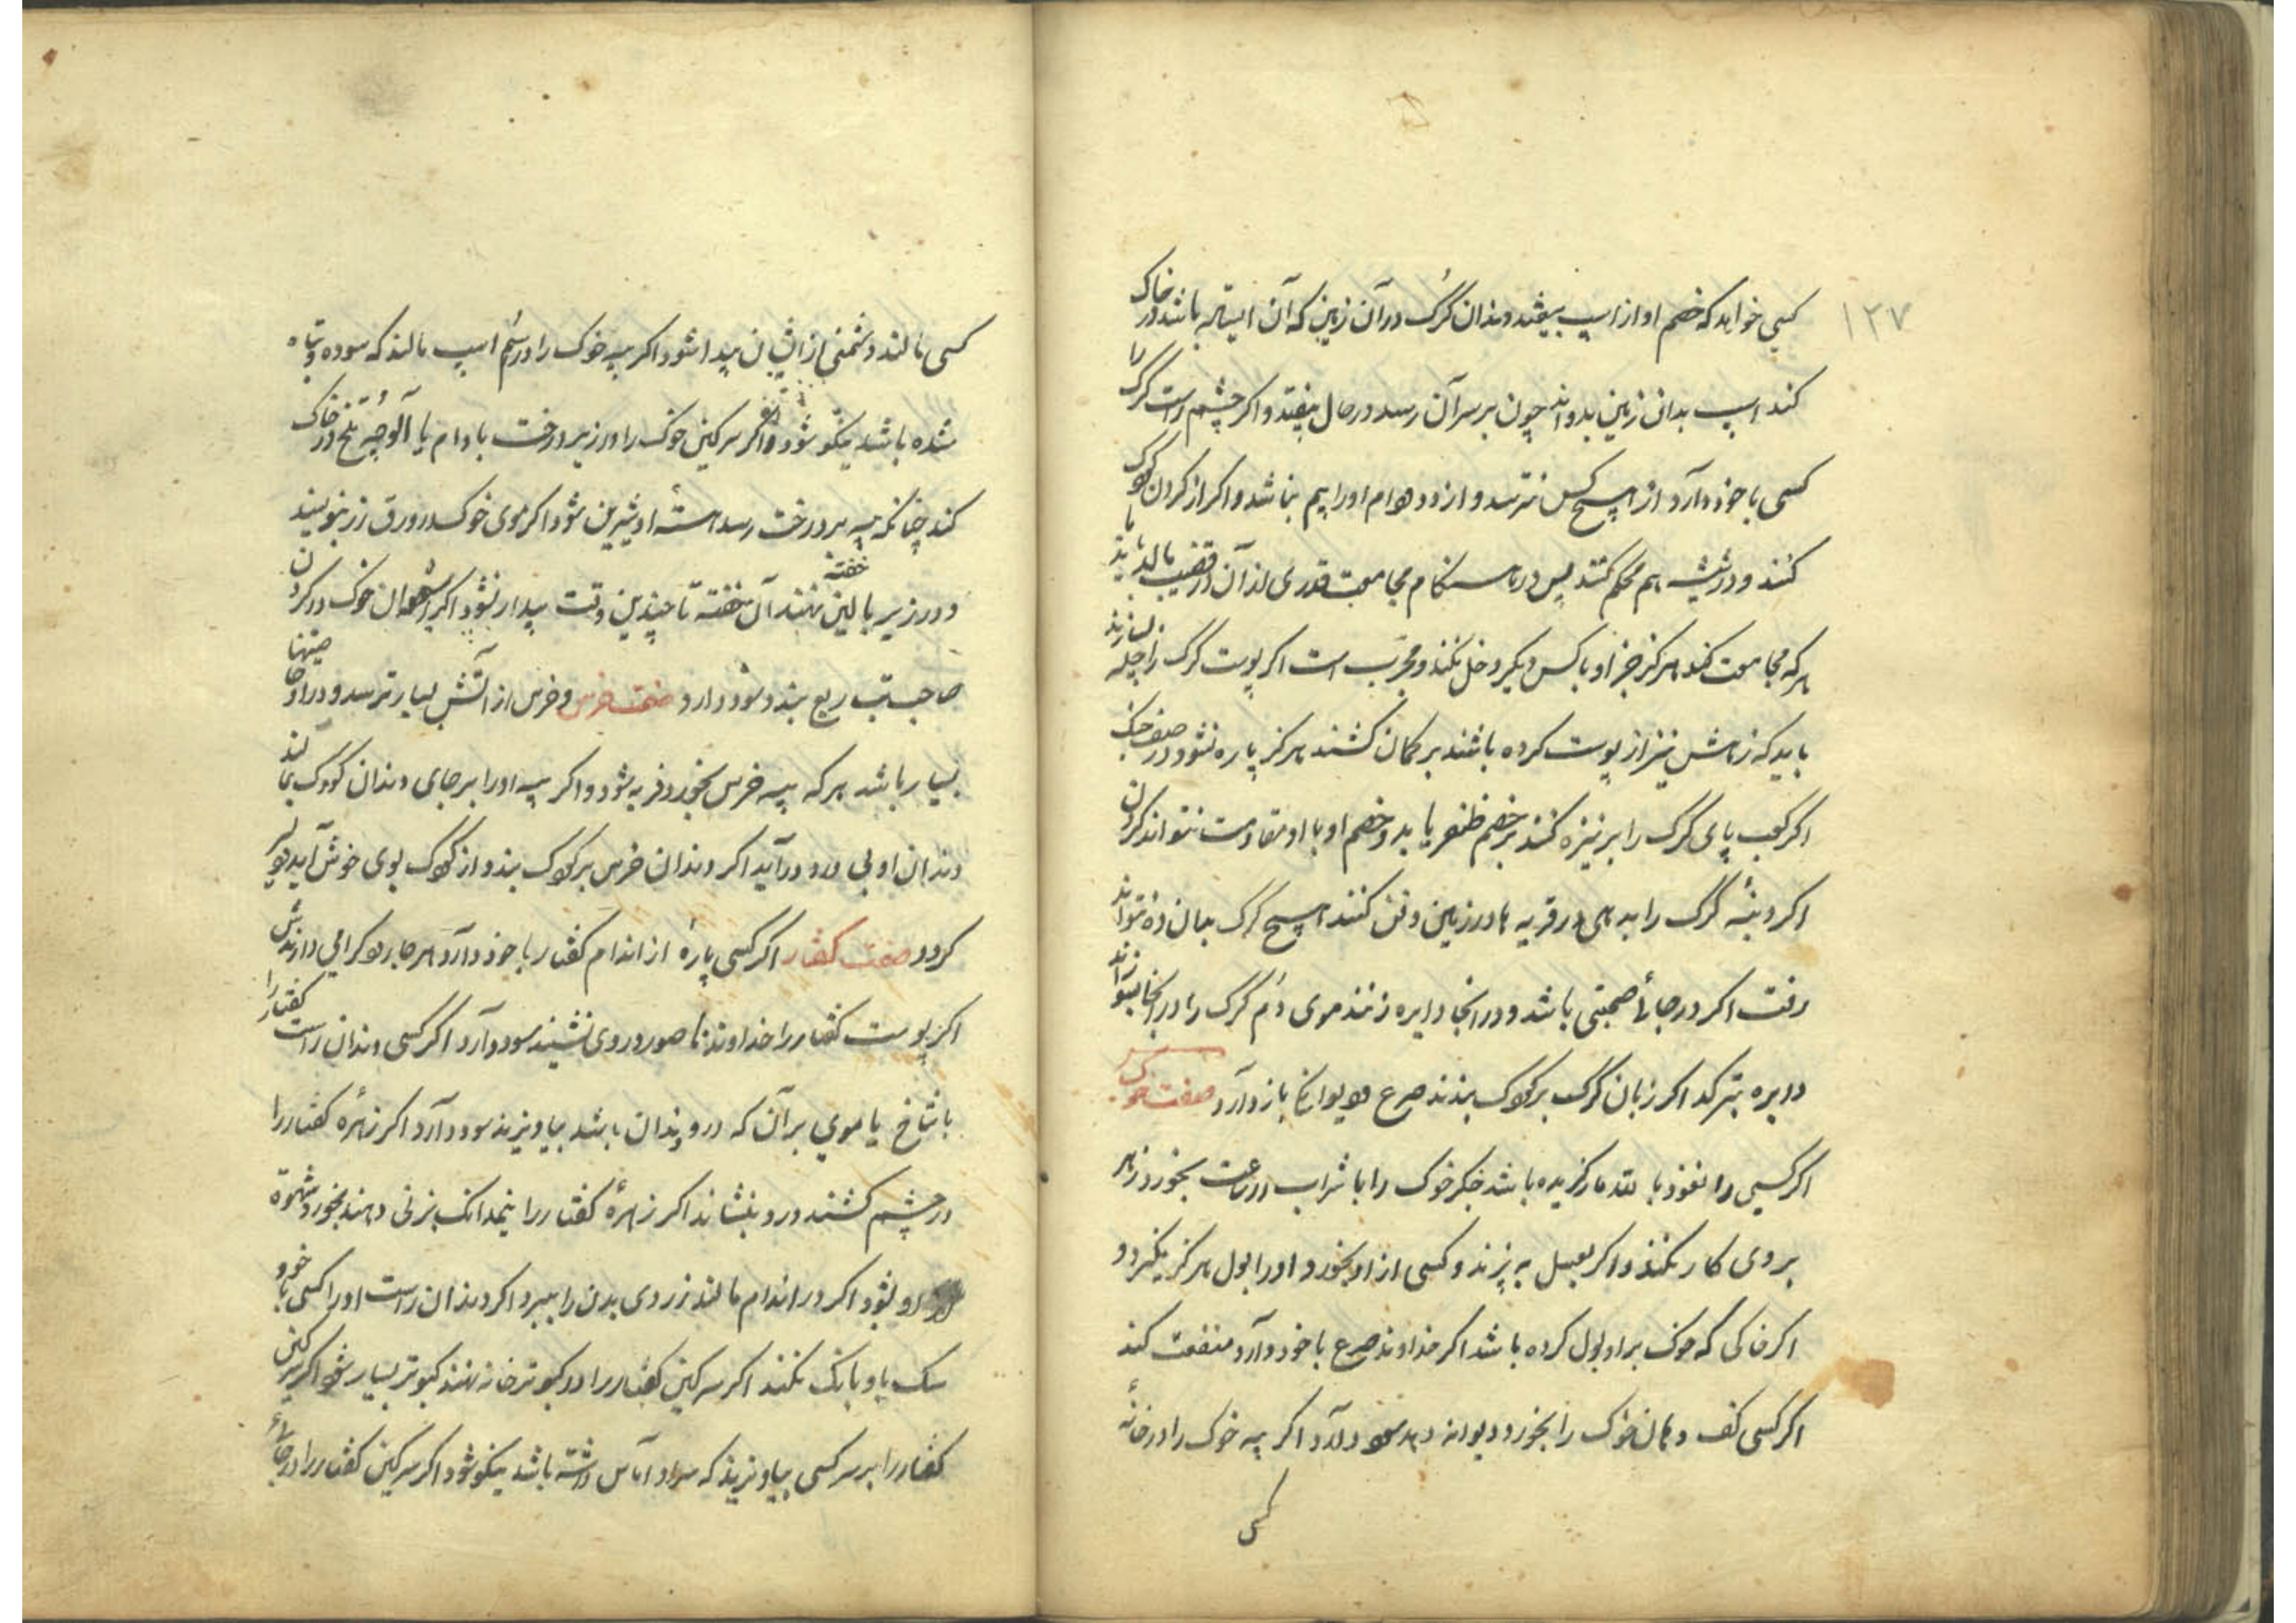 ۱۲۷
کسی خواهد که خصم او از اسپ بیفتد دندان گرگ در آن زمین که آن ایستاله باشد در خاک
کند اسپ بدان زمین بدواند چون بر سر آن رسد در حال بیفتد و اگر چشم راست گرگ را
کسی با خود دارد از هیچ کس نترسد و از دد و هوام او را بیم نباشد و اگر از گردن گرگ
کنند و در شیشه هم محکم کنند پس در هنگام مجامعت قدری از آن در قضیب بمالد باید با
هر که مجامعت کند هرگز جز او با کس دیگر دخل نکند و مجرب است اگر پوست گرگ را جله
باید که زهش نیز از پوست کرده باشند بر کمان کشند هرگز پاره نشود در صف جنگ
اگر کعب پای گرگ را بر نیزه کنند بر خصم ظفر یابد و خصم او با او مقاومت نتواند کردن
اگر دنبهٔ گرگ را بدهی در قریه یا در زمین دفن کنند هیچ گرگ بدان ده نتواند
رفت اگر در جائی صحبتی باشد و در انجا دایره زنند موی دم گرگ را در انجا بسوزانند
دایره بترکد اگر زبان گرگ بر کودک بندند صرع و دیوانگی باز دارد صفت خوک
اگر کسی را نعوذ بالله مار گزیده باشد جگر خوک را با شراب در ساعت بخورد زهر
بر وی کار نکند و اگر بعسل به پزند و کسی از او بخورد او را بول هرگز نگیرد و
اگر خاکی که خوک بر او بول کرده باشد اگر خداوند صرع با خود دارد منفعت کند
اگر کسی کف دهان خوک را بخورد دیوانه دهد سود دارد اگر پیه خوک را در خانهٔ
کسی
کسی مالند دشمنی از ایشان پیدا شود اگر پیه خوک را در سم اسپ مالند که سوده و تباه
شده باشد نیکو شود و اگر سرکین خوک را در زیر درخت بادام یا آلوچهٔ تلخ در خاک
کند چنانکه پیه بر درخت رسد هستهٔ او شیرین شود اگر موی خوک در ورق زر بنویسند
و در زیر بالین خفته نهند آن خفته تا چندین وقت بیدار نشود اگر استخوان خوک در گردن
صاحب تب ربع بندد سود دارد صفت خرس و خرس از آتش بسیار ترسد و در او خاصیتها
بسیار باشد هر که پیه خرس بخورد فربه شود و اگر پیه او را بر جای دندان کودک بمالند
دندان او بی درد درآید اگر دندان خرس بر کودک بندد از کودک بوی خوش آید و دلیر
گردد صفت کفتار اگر کسی پارهٔ از اندام کفتار با خود دارد هر جا رود گرامی دارندش
اگر پوست کفتار را خداوند ناصور در وی نشیند سود دارد اگر کسی دندان راست کفتار را
با شاخ یا موی بر آن که درد دندان باشد بیاویزند سود دارد اگر زهرهٔ کفتار را
در چشم کشند درد بنشاند اگر زهرهٔ کفتار را نیمدانک بزنی دهند بخورد شهوة
او بشود اگر در اندام مالند زردی بدن را ببرد اگر دندان راست او را کسی با خود
سک باو بانک نکند اگر سرکین کفتار را در کبوتر خانه نهند کبوتر بسیار شود اگر سرکین
کفتار را بر سر کسی بیاویزند که سر او آماس داشته باشد نیکو شود اگر سرکین کفتار را در جائی